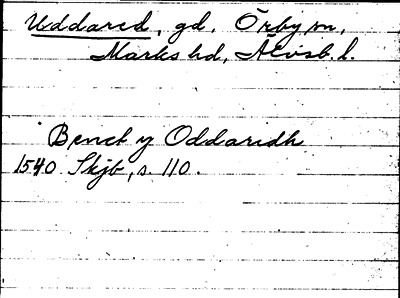 Uddared, gd, Örby sn,
Marks hd, Älvsb. l.
Benct y Oddaridh
1540 Skjb, s. 110.